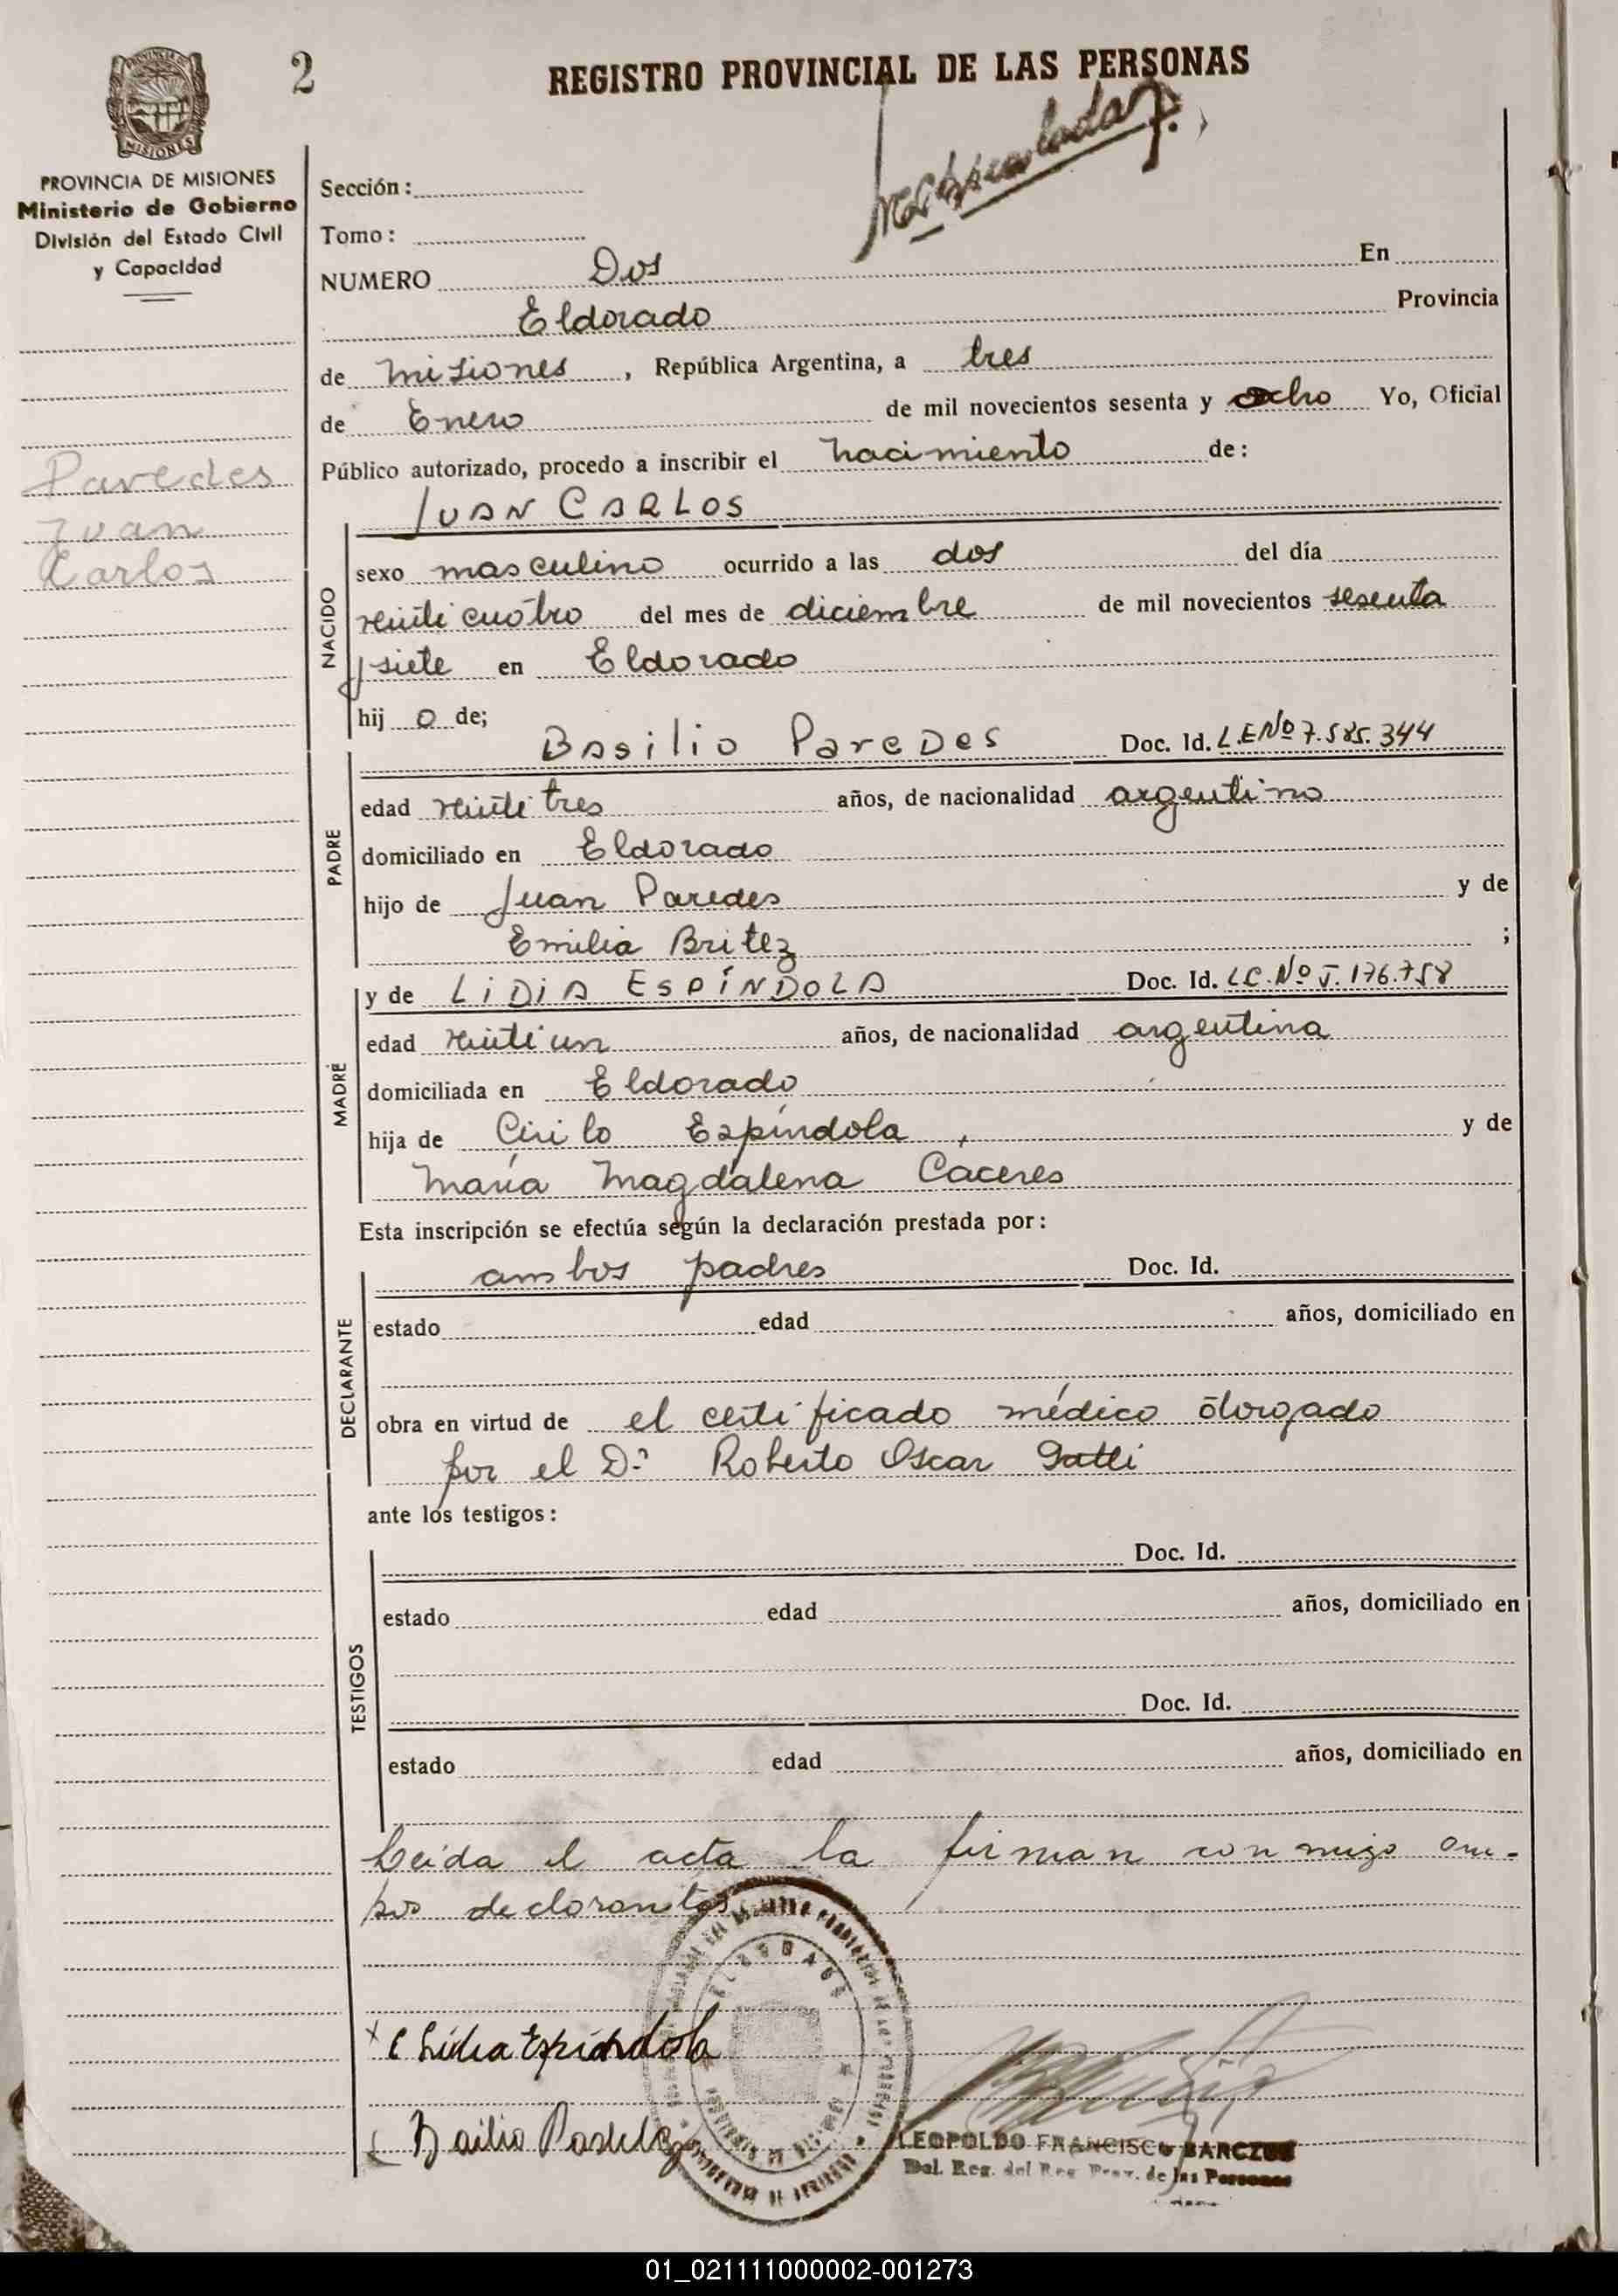 2
REGISTRO PROVINCIAL DE LAS PERSONAS
MISIONES
PROVINCIA DE MISIONES
Ministerio de Gobierno
División del Estado Civil
y Capacidad
Paredes
Juan
Carlos
Sección:
Tomo:
NUMERO Dos En
Eldorado Provincia
de Misiones, República Argentina, a tres
de Enero de mil novecientos sesenta y ocho Yo, Oficial
Público autorizado, procedo a inscribir el nacimiento de:
JUAN CARLOS
NACIDO
sexo masculino ocurrido a las dos del día
veinticuatro del mes de diciembre de mil novecientos sesenta
y siete en Eldorado
hijo de;
PADRE
Basilio Paredes Doc. Id. L.E Nº 7.585.344
edad veintitres años, de nacionalidad argentino
domiciliado en Eldorado
hijo de Juan Paredes y de
Emilia Britez ;
MADRE
y de LIDIA ESPÍNDOLA Doc. Id. L.C. Nº 5.176.758
edad veintiun años, de nacionalidad argentina
domiciliada en Eldorado
hija de Cirilo Espíndola, y de
María Magdalena Cáceres
Esta inscripción se efectúa según la declaración prestada por:
DECLARANTE
ambos padres Doc. Id.
estado edad años, domiciliado en
obra en virtud de el certificado médico otorgado
por el Dr. Roberto Oscar Gatti
ante los testigos:
TESTIGOS
Doc. Id.
estado edad años, domiciliado en
Doc. Id.
estado edad años, domiciliado en
Leída el acta la firman conmigo am-
bos declarantes
Lidia Espíndola
ELDORADO
LEOPOLDO FRANCISCO BARCZUK
Del. Reg. del Reg. Prov. de las Personas
01_021111000002-001273